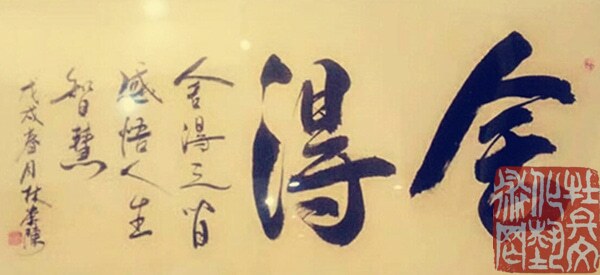 舍得
舍得之
感悟人生
智慧
戊戌春月林